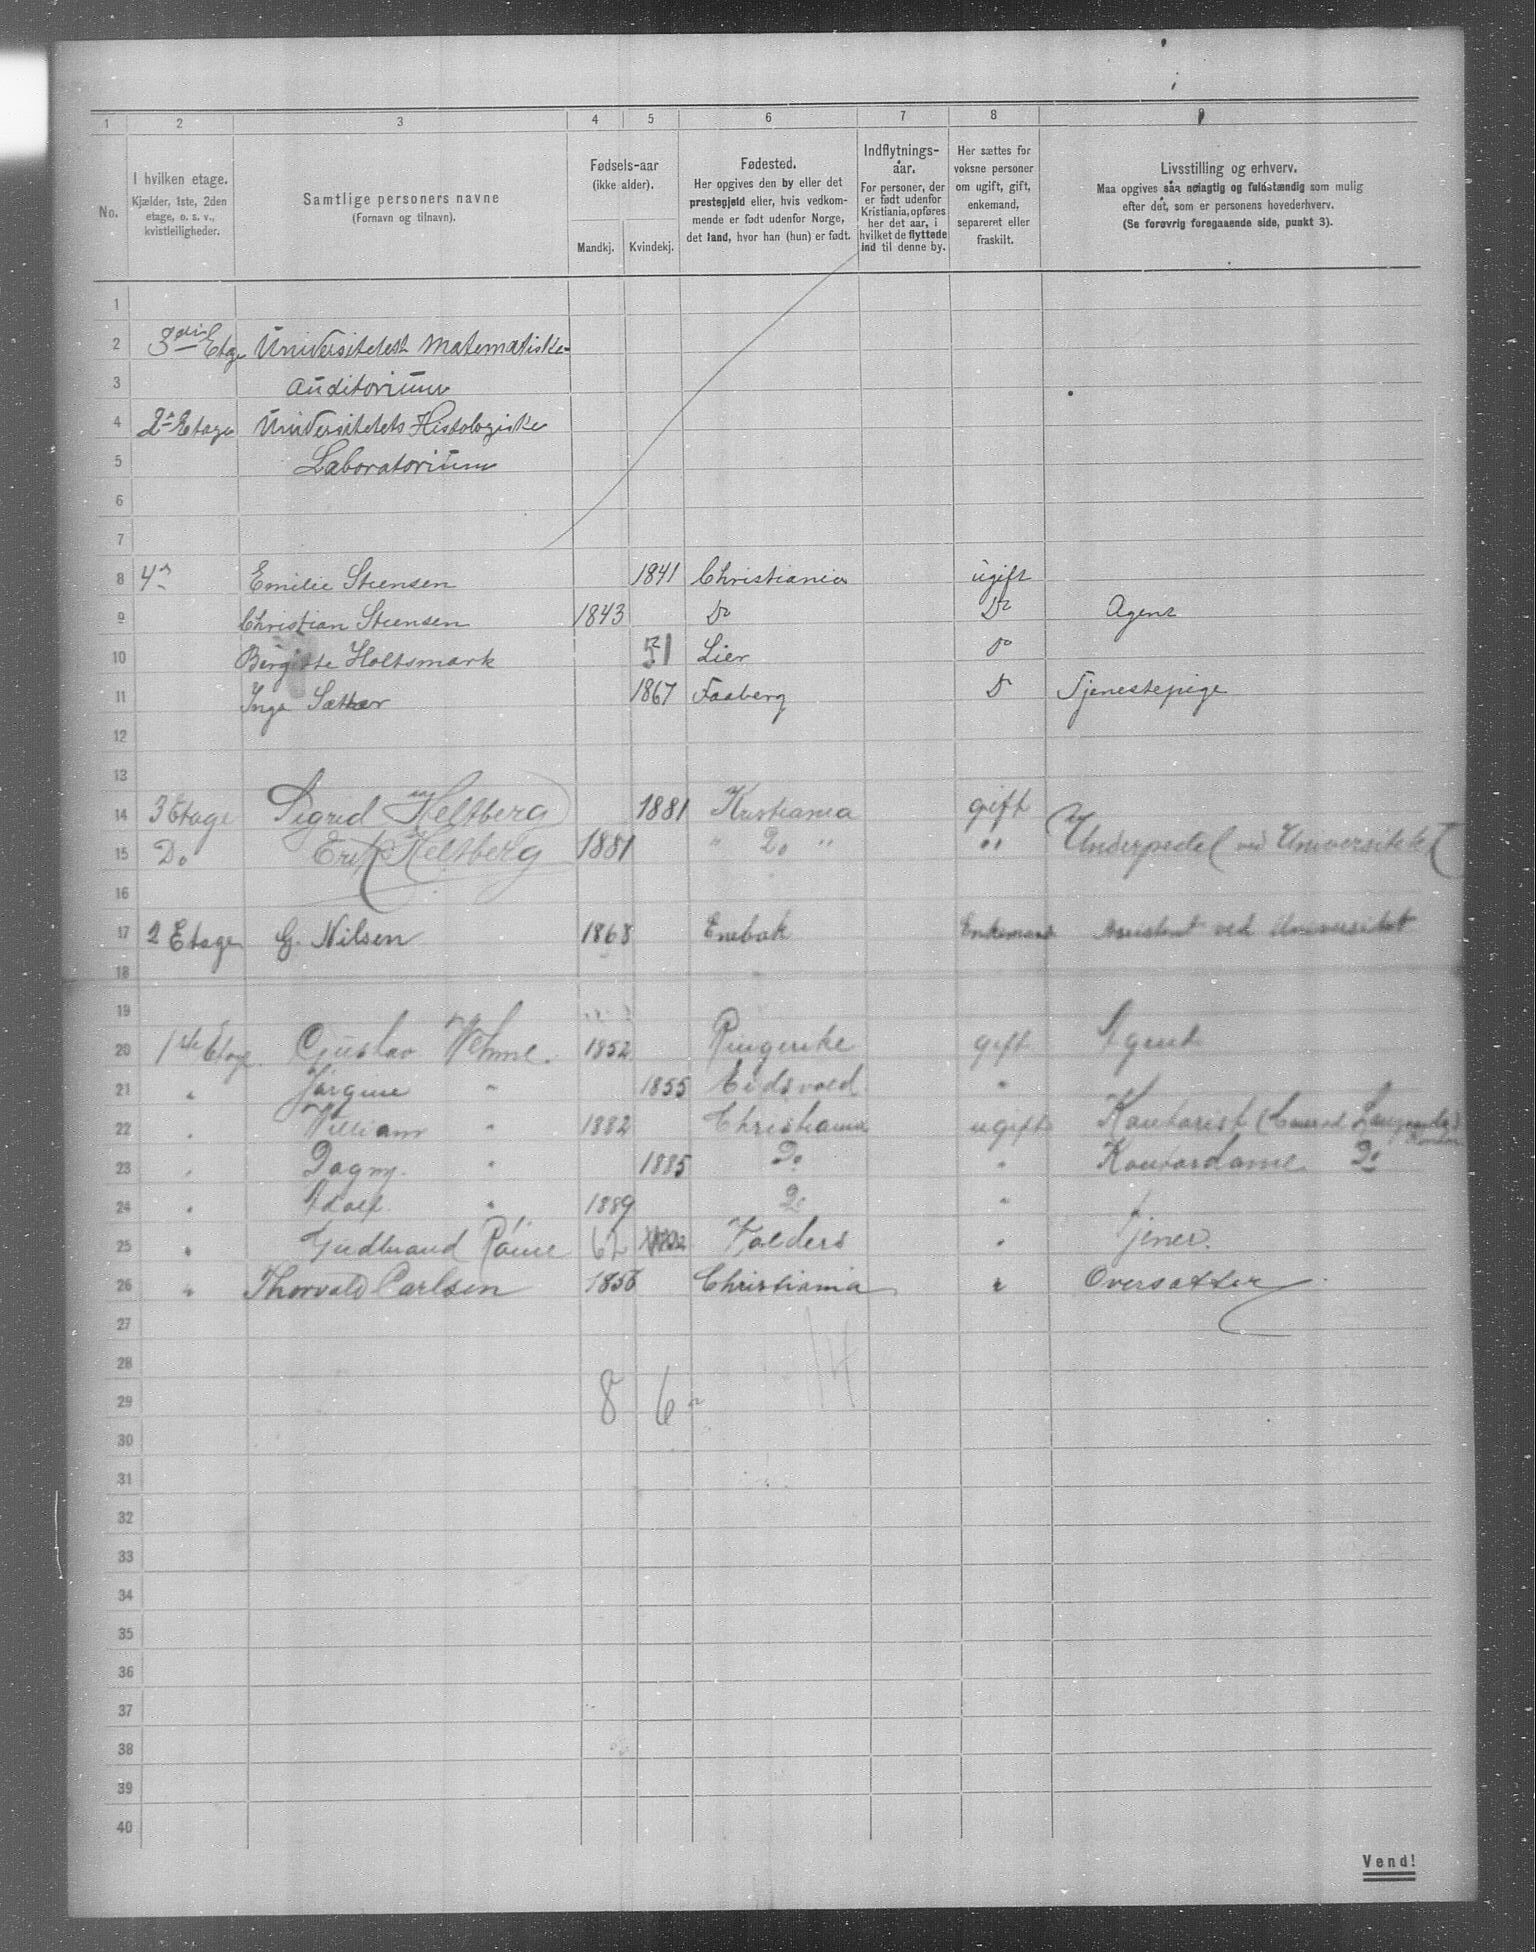 1 2 3 4 5 6 7 8 9
No.
I hvilken etage.
Kjælder, 1ste, 2den
etage, o. s. v.,
kvistleiligheder.
Samtlige personers navne
(Fornavn og tilnavn).
Fødsels-aar
(ikke alder).
Mandkj. Kvindekj.
Fødested.
Her opgives den by eller det
prestegjeld eller, hvis vedkom-
mende er født udenfor Norge,
det land, hvor han (hun) er født.
Indflytnings-
aar.
For personer, der
er født udenfor
Kristiania, opføres
her det aar, i
hvilket de flyttede
ind til denne by.
Her sættes for
voksne personer
om ugift, gift,
enkemand,
separeret eller
fraskilt.
Livsstilling og erhverv.
Maa opgives saa nøiagtig og fuldstændig som mulig
efter det, som er personens hovederhverv.
(Se forøvrig foregaaende side, punkt 3).
1
2 3die Etage Universitetest Matematiske-
3 Auditorium
4 2n Etage Universitetets Histologiske
5 Laboratorium
6
7
8 4n Emilie Steensen 1841 Christiania ugift
9 Christian Steensen 1843 Do Do Agent
10 Birgitte Holtsmark 51 Lier Do
11 Inga Sæther 1867 Faaberg Do Tjenestepige
12
13
14 3 Etage Sigrid Heltberg 1881 Kristiania gift
15 Do Erik Heltberg 1881 " Do " " Underpedel ved Universitetet
16
17 2 Etage G. Nilsen 1868 Enebak Enkemand Assistent ved Universitet
18
19
20 1ste Etage Gustav Wehme. 1852 Ringerike gift Agent
21 " Jørgine " 1855 Eidsvold "
22 " William " 1882 Christiania ugift Kontorist (Conrad
23 " Dagny. " 1885 Do " Kontordame Do
24 " Adolf. " 1889 Do "
25 " Gudbrand 62 Valders " Tjener.
26 " Thorvald Carlsen 1856 Christiania " Oversætter
27
28
29 8 6 14
30
31
32
33
34
35
36
37
38
39
40
Vend!